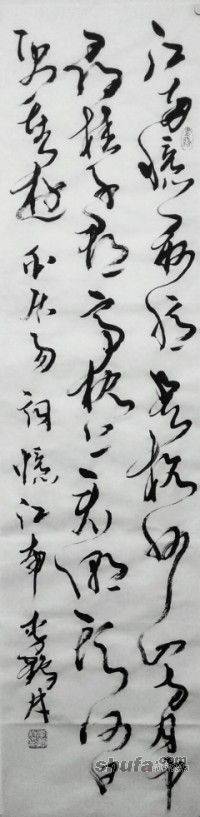 江南忆最忆是杭州山寺月中
寻桂子郡亭枕上看潮头何日
更重游 白居易词忆江南
shufa